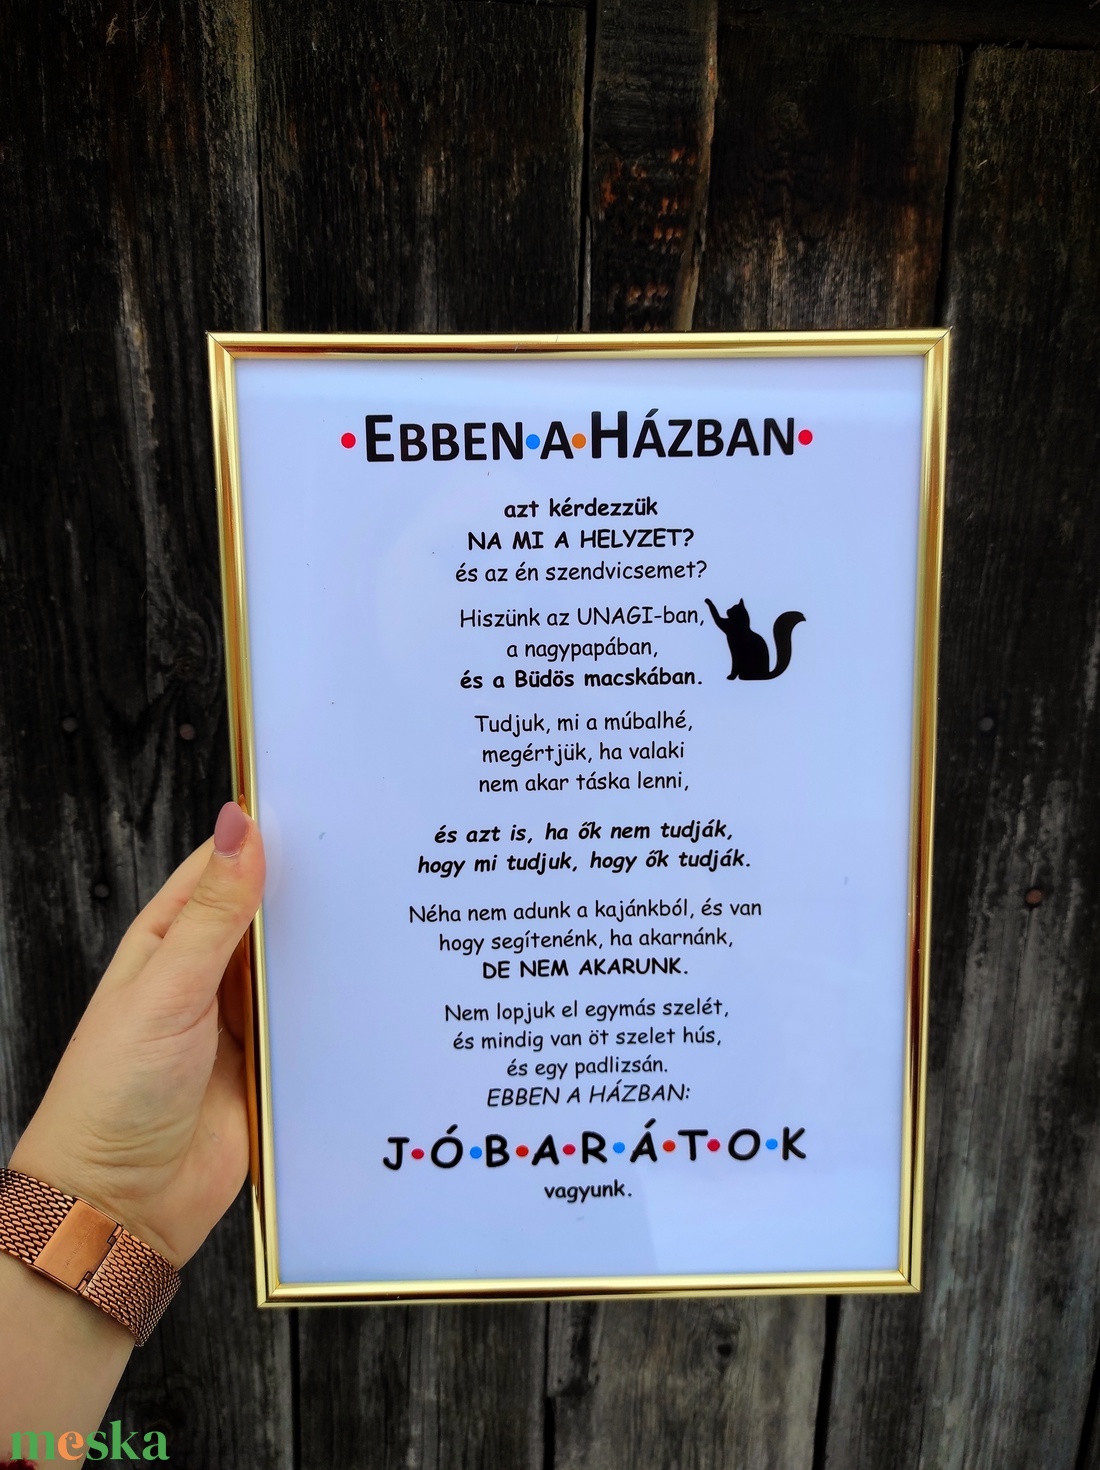 •EBBEN•A•HÁZBAN•
azt kérdezzük
NA MI A HELYZET?
és az én szendvicsemet?
Hiszünk az UNAGI-ban,
a nagypapában,
és a Büdös macskában.
Tudjuk, mi a múbalhé,
megértjük, ha valaki
nem akar táska lenni,
és azt is, ha ők nem tudják,
hogy mi tudjuk, hogy ők tudják.
Néha nem adunk a kajánkból, és van
hogy segítenénk, ha akarnánk,
DE NEM AKARUNK.
Nem lopjuk el egymás szelét,
és mindig van öt szelet hús,
és egy padlizsán.
EBBEN A HÁZBAN:
J•Ó•B•A•R•Á•T•O•K
vagyunk.
meska